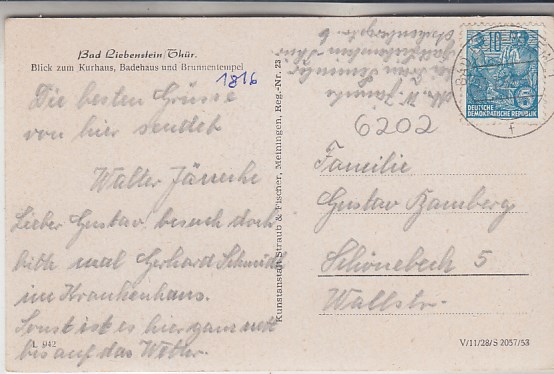 Bad Liebenstein/Thür.
Blick zum Kurhaus, Badehaus und Brunnentempel
1816
Die besten Grüsse
von hier sendet
Walter
Lieber Gustav, besuch doch
bitte mal Gerhard Schmidt
im Krankenhaus.
Sonst ist es hier ganz nett
bis auf das Wetter.
L 942
Kunstanstalt Straub & Fischer, Meiningen, Reg.-Nr. 23
Bad Liebenstein
6202
10
DEUTSCHE
DEMOKRATISCHE REPUBLIK
f
Familie
Gustav Bamberg
Schönebeck 5
Wallstr.
V/11/28/S 2057/53